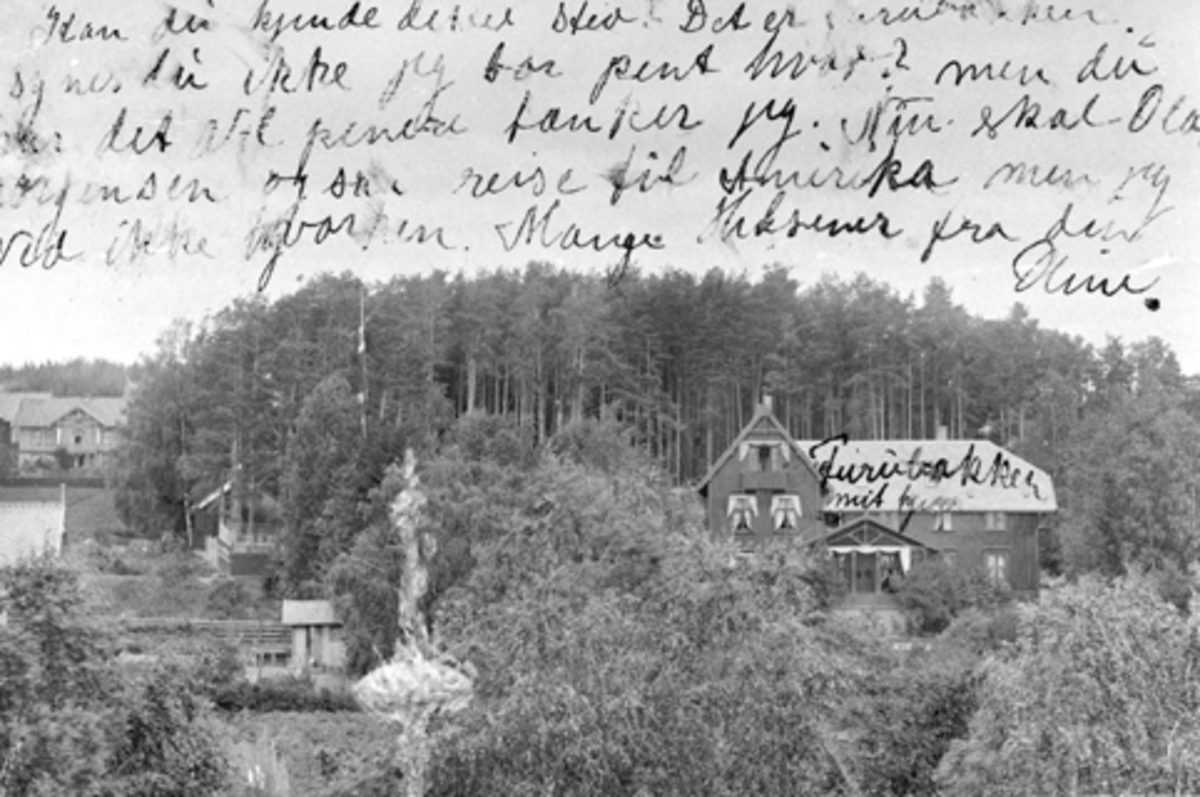 Kan du kjende dette sted? Det er Furubakken.
synes du ikke jeg bor pent hvad? men du
har det vel penere tænker jeg. Nu skal Olaf
Jørgensen også reise til Amerika men jeg
ved ikke hvorhen. Mange Hilsener fra din
Oline.
Furubakken
mit hjem